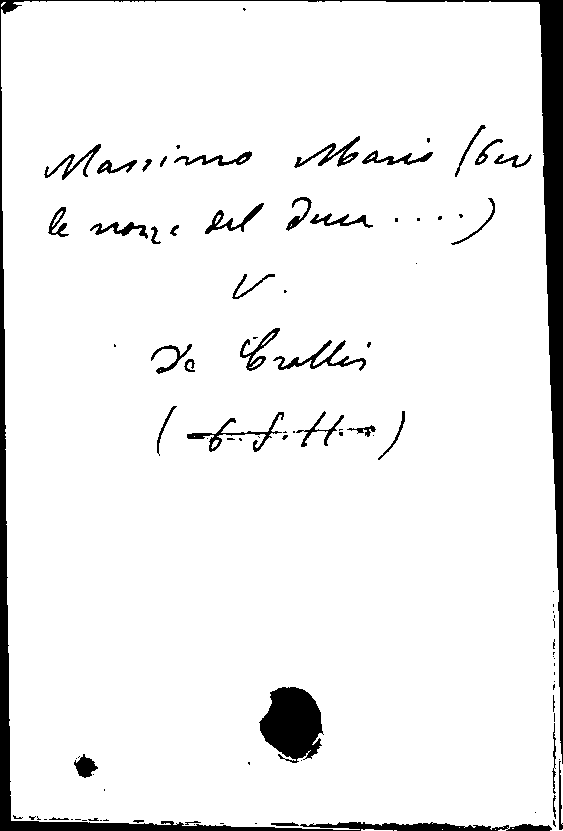 Massimo Mario (Per
le nozze del Duca ....)
V.
De Crollis
( 6. f. 11. )